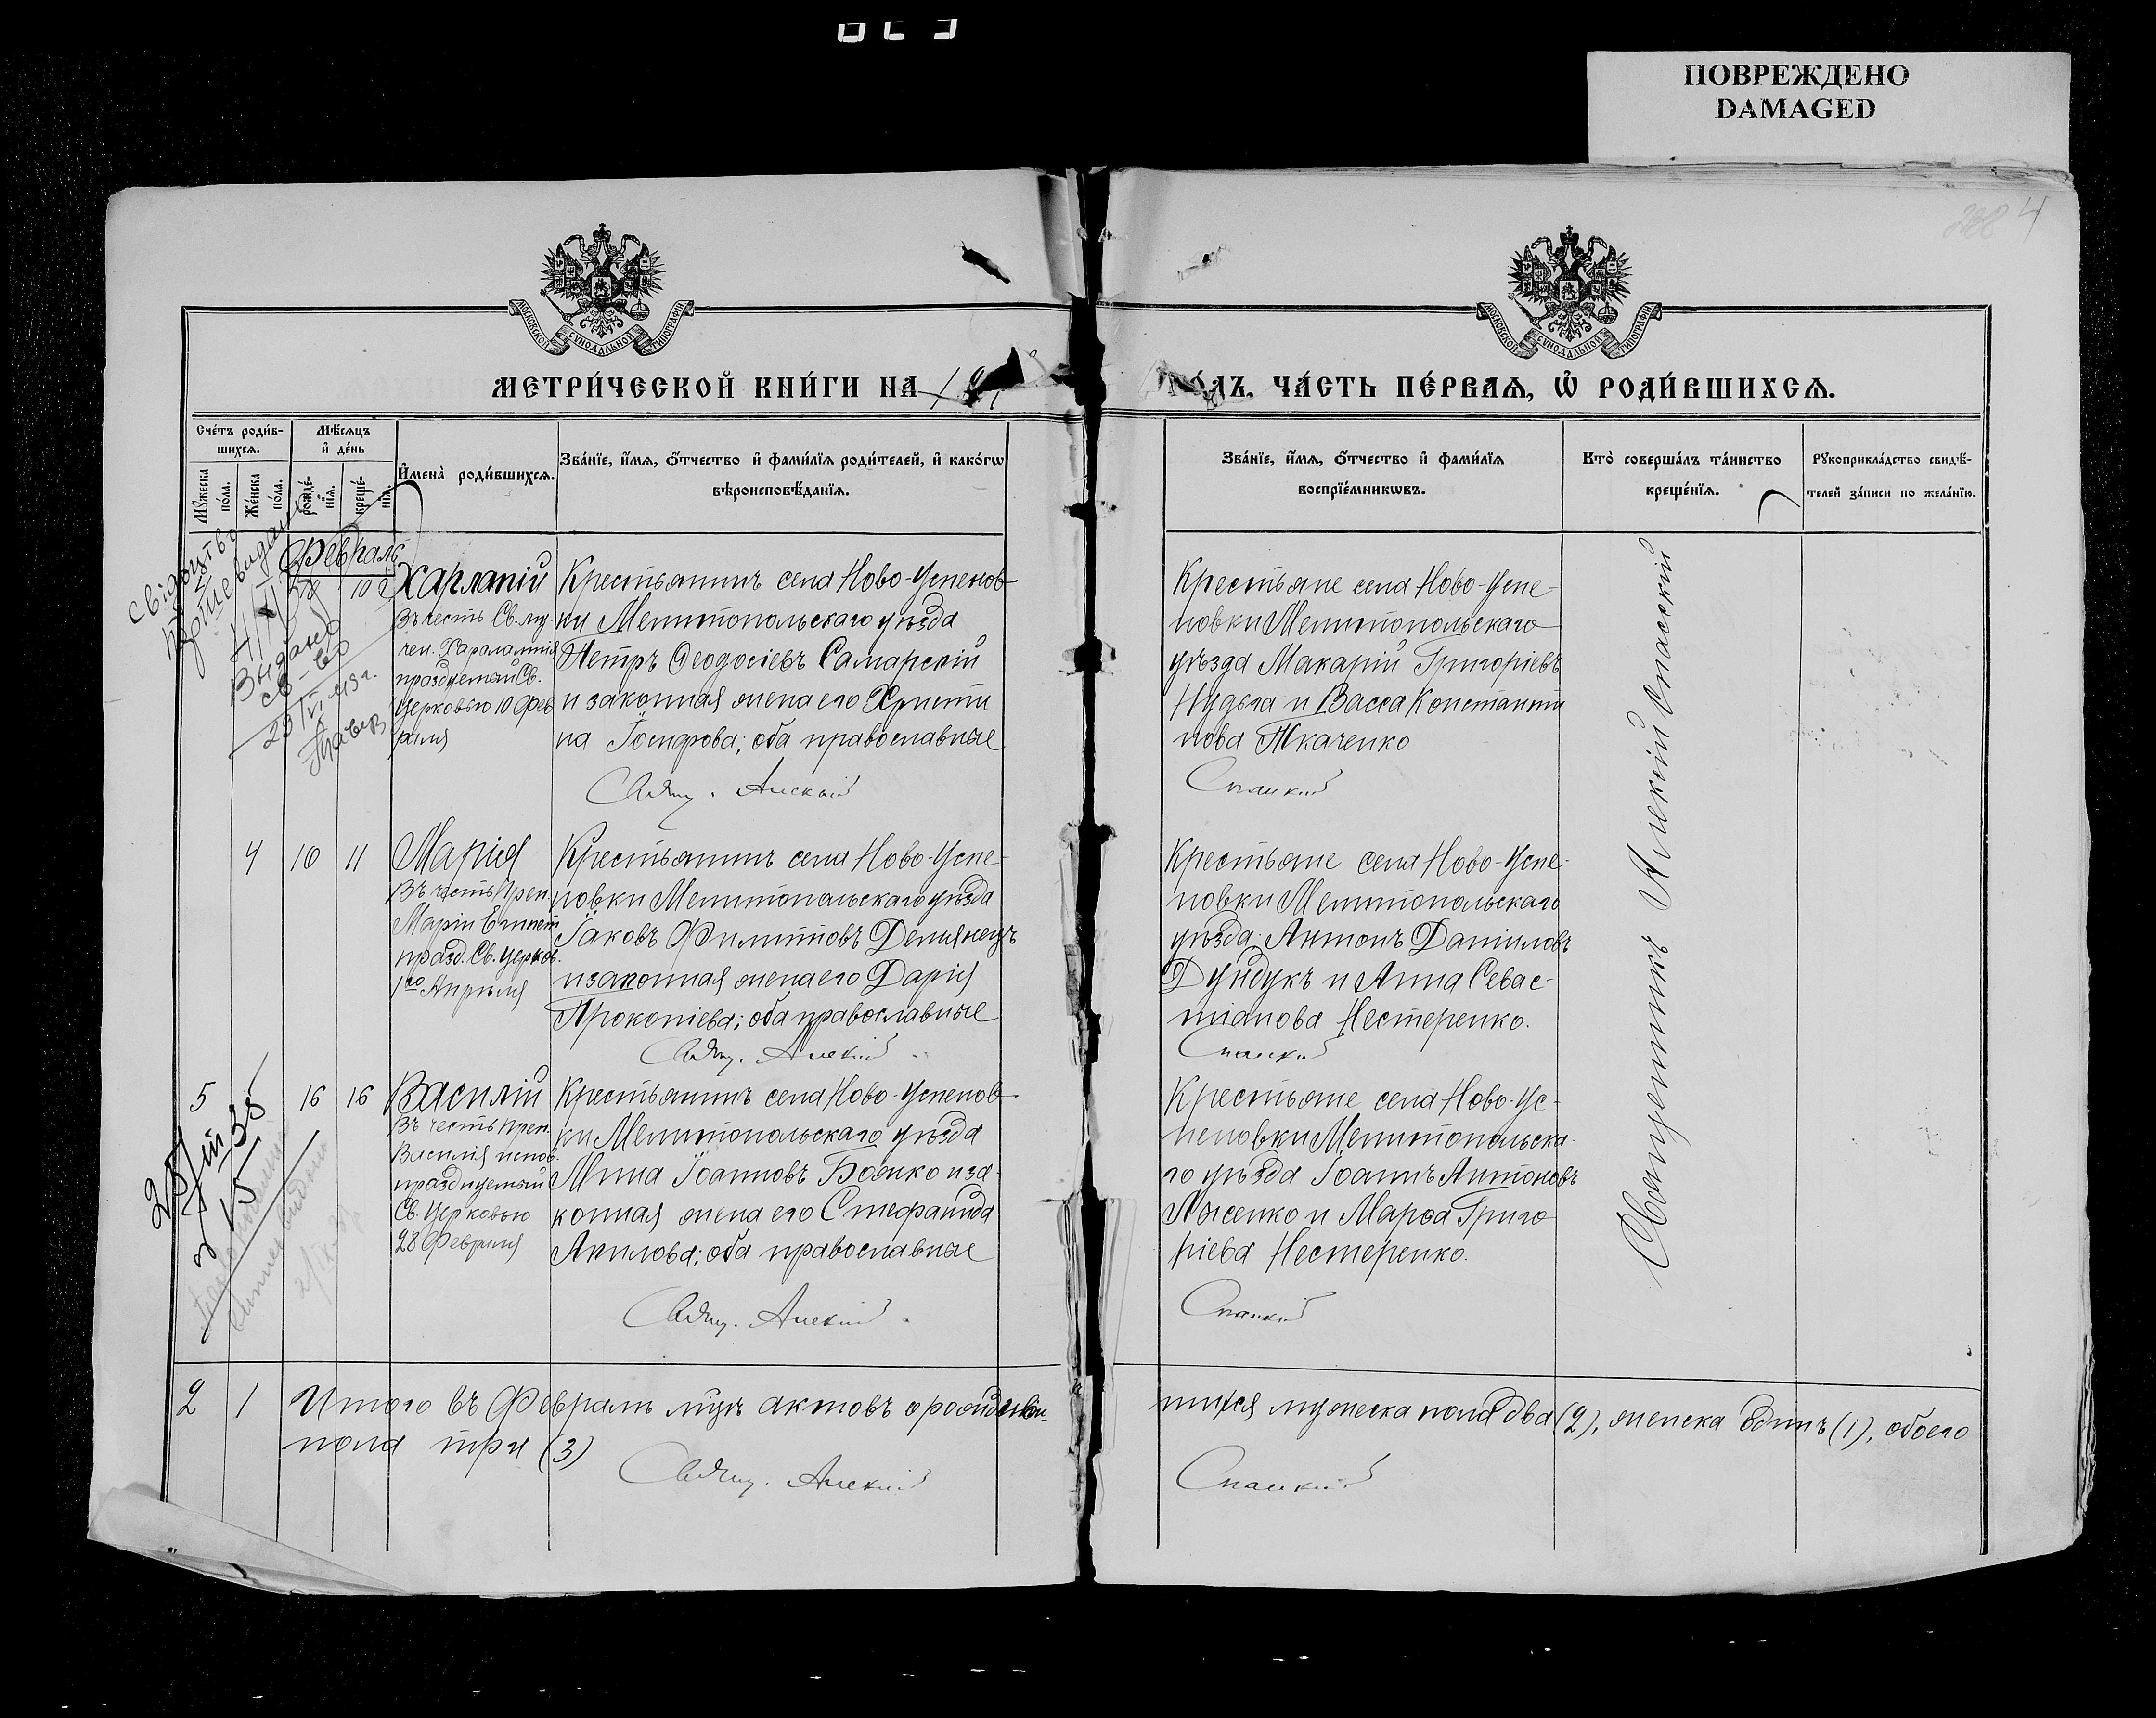 ПОВРЕЖДЕНО
DAMAGED
4
МОСКОВСКОЙ СУНОДАЛЬНОЙ ТИПОГРАФІИ
МОСКОВСКОЙ СУНОДАЛЬНОЙ ТИПОГРАФІИ
МЕТРИ́ЧЕСКОЙ КНИ́ГИ НА 19
ГО́ДЪ, ЧА́СТЬ ПЕ́РВАѦ, Ѽ РОДИ́ВШИХСѦ.
Сче́тъ роди́в-
шихсѧ.
Мꙋ́жеска
по́ла.
Же́нска
по́ла.
Мѣ́сѧцъ
и҆ де́нь
рожде́-
нїѧ.
креще́-
нїѧ.
И҆мена̀ роди́вшихсѧ.
Зва́нїе, и҆́мѧ, ѻ҆́тчество и҆ фами́лїѧ роди́телей, и҆ како́гѡ
вѣроисповѣ́данїѧ.
Зва́нїе, и҆́мѧ, ѻ҆́тчество и҆ фами́лїѧ
воспрїе́мникѡвъ.
Кто̀ соверша́лъ та́инство
креще́нїѧ.
Рꙋкоприкла́дство свидѣ́-
телей за́писи по жела́нїю.
Февраль
10
Харлапій
Въ честь Св. му-
чен. Харалампія
празднуемый Св.
Церковью 10 Фев
раля
Крестьянинъ села Ново-Успенов-
ки Мелитопольскаго уѣзда
Петръ Ѳеодосіевъ Самарскій
и законная жена его Христи
на Іосифова; оба православные
Свящ. Алексій
Крестьяне села Ново-Успе-
новки Мелитопольскаго
уѣзда Макарій Григоріевъ
Нудьга и Васса Константи
нова Ткаченко
Спасскій
Священникъ Алексій Спасскій
Выдано
св-во
4 10 11
Марія
Въ честь Преп.
Маріи Египет
празд. Св. Церков.
1го Апрѣля
Крестьянинъ села Ново-Успе-
новки Мелитопольскаго уѣзда
Іаковъ Филипповъ Демянецъ
и законная жена его Дарія
Прокопіева; оба православные
Свящ. Алексій
Крестьяне села Ново-Успе-
новки Мелитопольскаго
уѣзда Антонъ Даніиловъ
Дундукъ и Анна Севас-
тіанова Нестеренко.
Спасскій
5 16 16
Василій
Въ честь преп.
Василія испов.
празднуемый
Св. Церковью
28 Февраля
Крестьянинъ села Ново-Успенов-
ки Мелитопольскаго уѣзда
Мина Іоанновъ Божко и за-
конная жена его Стефанида
Акилова; оба православные
Свящ. Алексій
Крестьяне села Ново-Ус-
пеновки Мелитопольска-
го уѣзда Іоаннъ Антоновъ
Лысенко и Марѳа Григо
ріева Нестеренко.
Спасскій
2 1 Итого въ Февралѣ мцѣ актовъ о рожден
шихся мужеска пола два (2), женска одинъ (1), обоего
пола три (3)
Свящ. Алексій
Спасскій